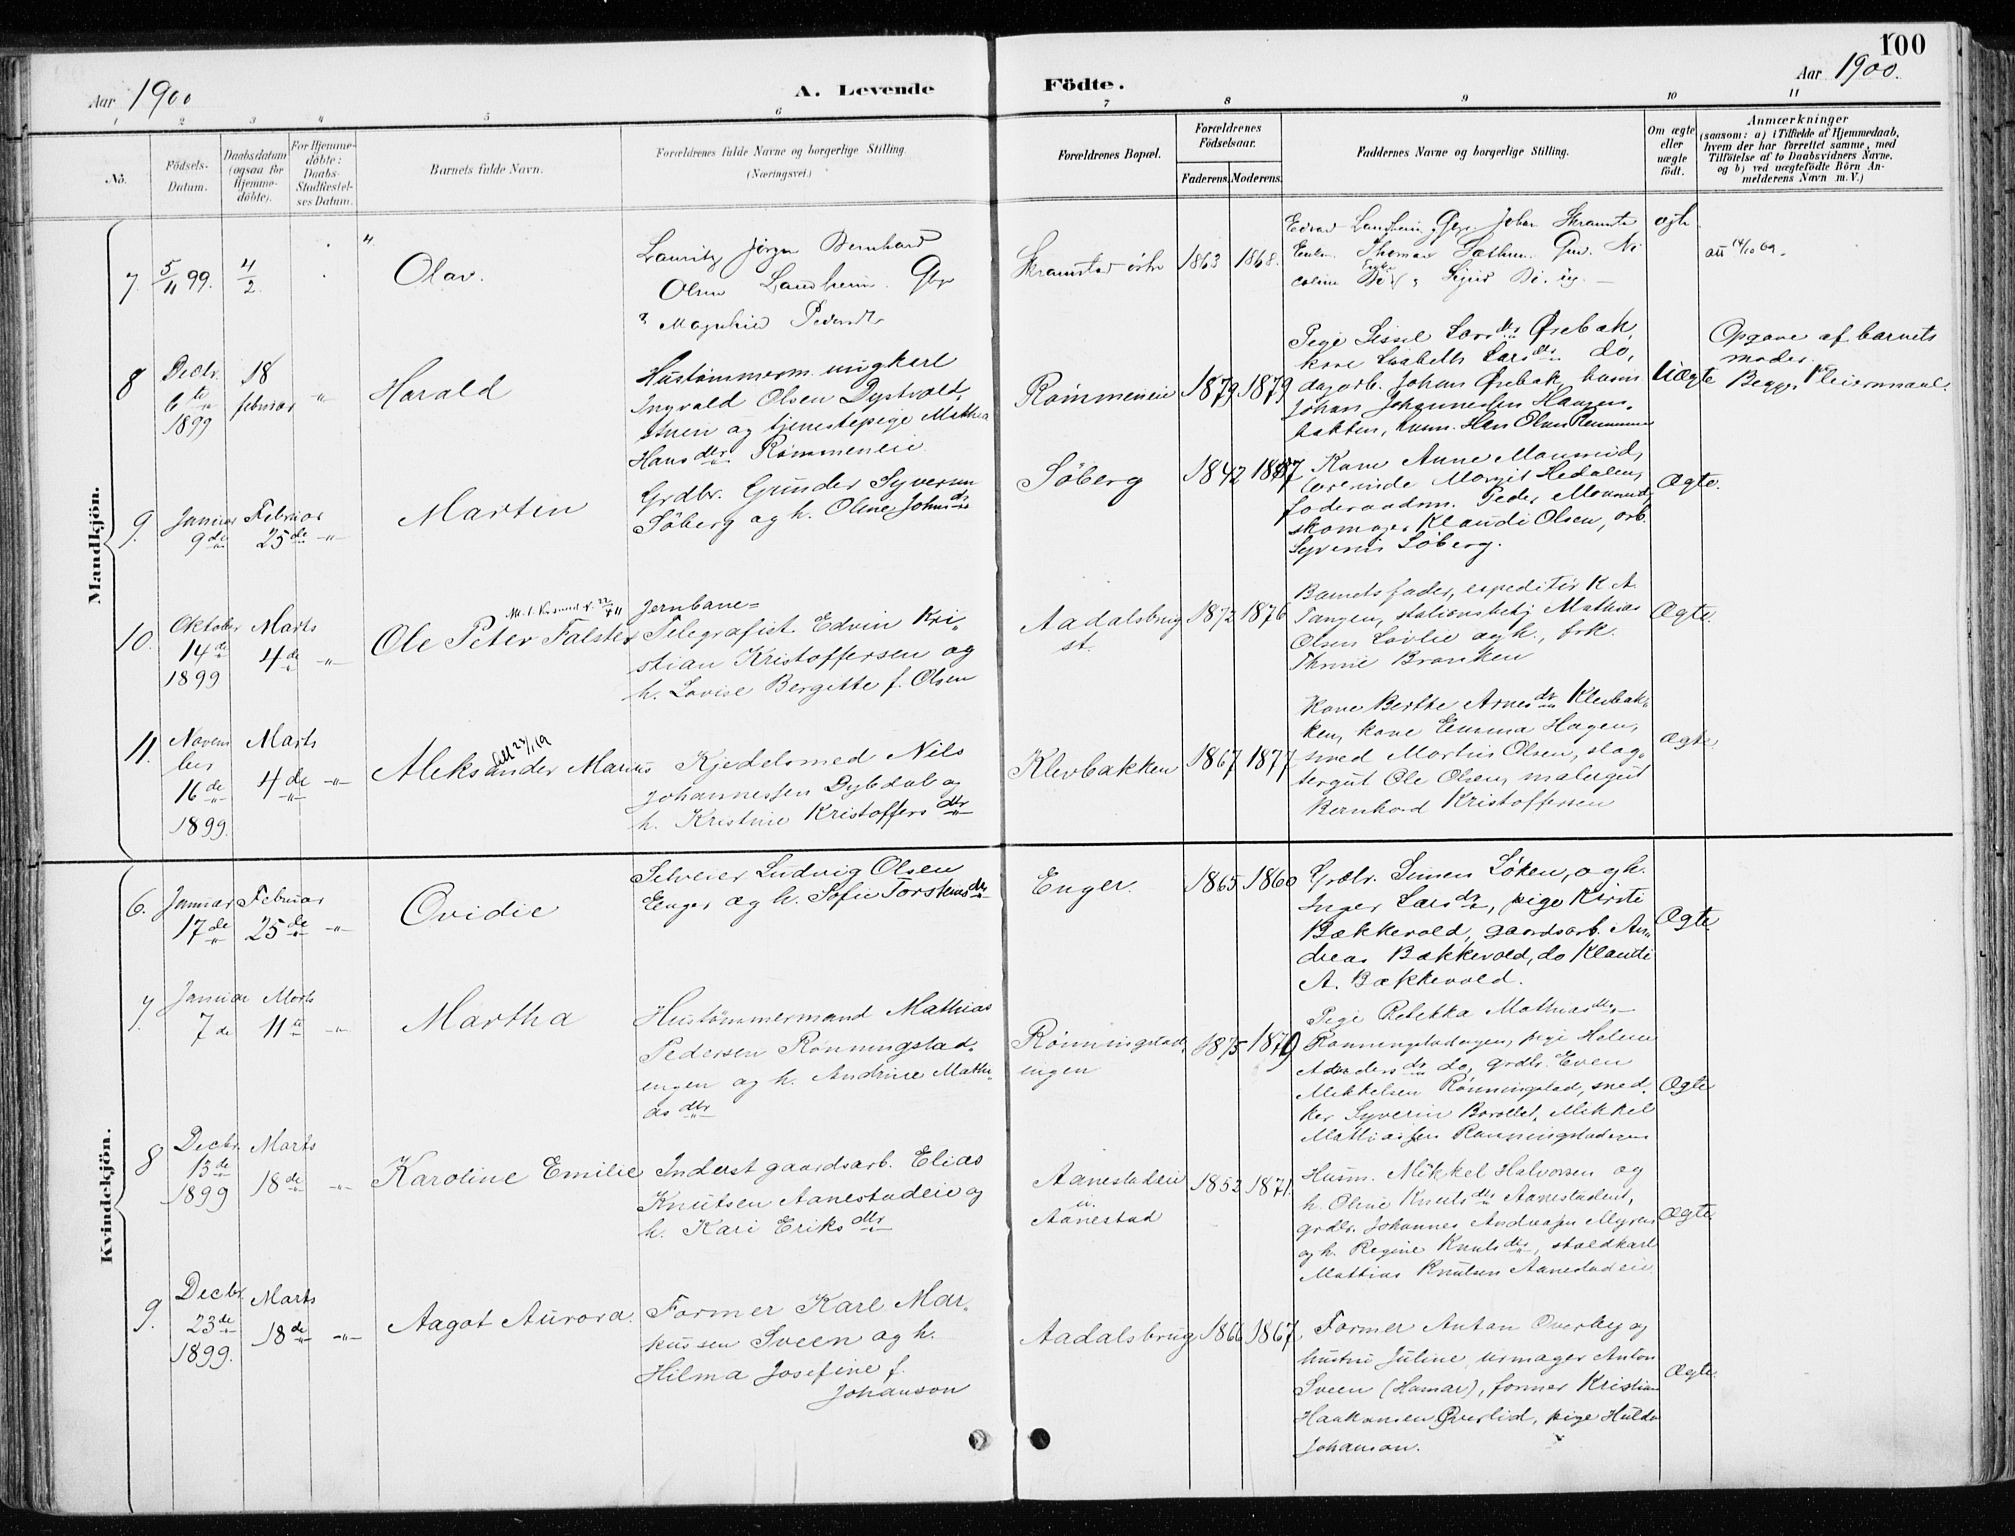 100
Aar 1900
A. Levende
Födte.
Aar 1900.
1 2 3 4 5 6 7 8 9 10 11
No.
Födsels-Datum.
Daabsdatum (ogsaa for Hjemme-döbte).
For Hjemme-döbte: Daabs-Stadfæstel-ses Datum.
Barnets fulde Navn.
Forældrenes fulde Navne og borgerlige Stilling. (Næringsvei.)
Forældrenes Bopæl.
Forældrenes Födselsaar.
Faderens. Moderens.
Faddernes Navne og borgerlige Stilling.
Om ægte eller uægte födt.
Anmærkninger
(saasom: a) i Tilfælde af Hjemmedaab,
hvem der har forrettet samme, med
Tilföielse af to Daabsvidners Navne,
og b) ved uægtefödte Börn An-
melderens Navn m. V.)
Mandkjön.
7. 5/11 99. 4/2 Olav.
Lauritz Jörgen Bernhard
Olsen Landheim. Gbr
Pedersdtr
Skramstad östre 1863 1868.
ægte
att 14/10 69.
8 Decbr. 6te 1899 18 februar " Harald
Hustømmerm. ungkarl
Ingvald Olsen Dystvold,
stuen og tjenestepige Mathea
Hansdtr Rømmeneie
Rømmeneie 1879 1879
Pige Sissel Larsdtr Øsebak,
kone Lisabeth Larsdtr do,
dagarb. Johans Øsebak, husm.
Johan Johannessen Haugen-
bakken, husm. Hans Olsen Rømmen
Uægte
Opgave af barnets
moder.
Begges 1 leiermaal.
9. Januar 9de Februar 25de " Martin
Grdbr. Gunder Syversen
Søberg og h. Oline Johnsdr
Søberg 1842 1857
Kone Anne Mourud,
lærerinde Margit Hedalen,
føderaadsm. Peder Mourud,
skomager Klaudi Olsen, arb.
Syverin Søberg.
Ægte.
10. Oktober 14de 1899 Marts 4de " Ole Peter Falster
Jernbane=
Telegrafist. Edvin Kri-
stian Kristoffersen og
h. Lovise Bergitte f. Olsen
Aadalsbrug st. 1872 1876
Barnets fader, expeditør K. A.
Tangen, stationsbetj Mathias
Olsen Løvlie og h., frk.
Thrine Brænken
Ægte.
11. Novem ber 16de 1899. Marts 4de " Aleksander Marius
Kjedelsmed Nils
Johannessen Dybdal og
h. Kristine Kristoffersdtr
Klevbakken 1867 1877
Kone Berthe Arnesdr Klevbak-
ken, kone Emma Hagen,
smed Martin Olsen, slag-
tergut Ole Olsen, malergut
Bernhard Kristoffersen
Ægte,
Kvindekjön.
6. Januar 17de Februar 25de " Ovidie
Selveier Ludvig Olsen
Enger og h. Sofie Torstensdtr
Enger. 1865 1860
Grdbr. Simen Løken, og h.
Inger Larsdr, pige Kirsti
Bækkevold, gaardsarb. An-
dreas Bækkevold, do Klaudi
A. Bækkevold.
Ægte.
7. Januar 7de Marts 11te " Martha
Hustømmermand Mathias
Pedersen Rønningstad-
engen og h. Andrine Mathi-
asdtr
Rønningstad, engen 1875 1879
Pige Rebekka Mathiasdtr
Rønningstadengen, pige Helene
Andersdr do, grdbr. Even
Mikkelsen Rønningstad, sned-
ker Syverin, Mikkel
Mathiassen Rønningstadengen
Ægte
8 Decbr. 13de 1899 Marts 18de " Karoline Emilie
Inderst gaardsarb. Elias
Knutsen Aanestadeie og
h. Kari Eriksdtr
Aanestadeie u. Aanestad 1852 1871.
Husm. Mikkel Halvorsen og
h. Oline Knutsdtr Aanestadeie,
grdbr. Johannes Andreassen Myren
og h. Regine Knutsdtr, staldkarl
Mathias Knutsen Aanestadeie
Ægte.
9. Decbr. 23de 1899. Marts 18de " Aagot Aurora.
Former Karl Mar-
kussen Sveen og h.
Hilma Josefine f.
Johanson
Aadalsbrug 1866 1867.
Former Anton Overby og
hustru Juline, urmager Anton
Sveen (Hamar), former Kristian
Haakonsen Øverlid, pige Hulda
Johanson.
Ægte.